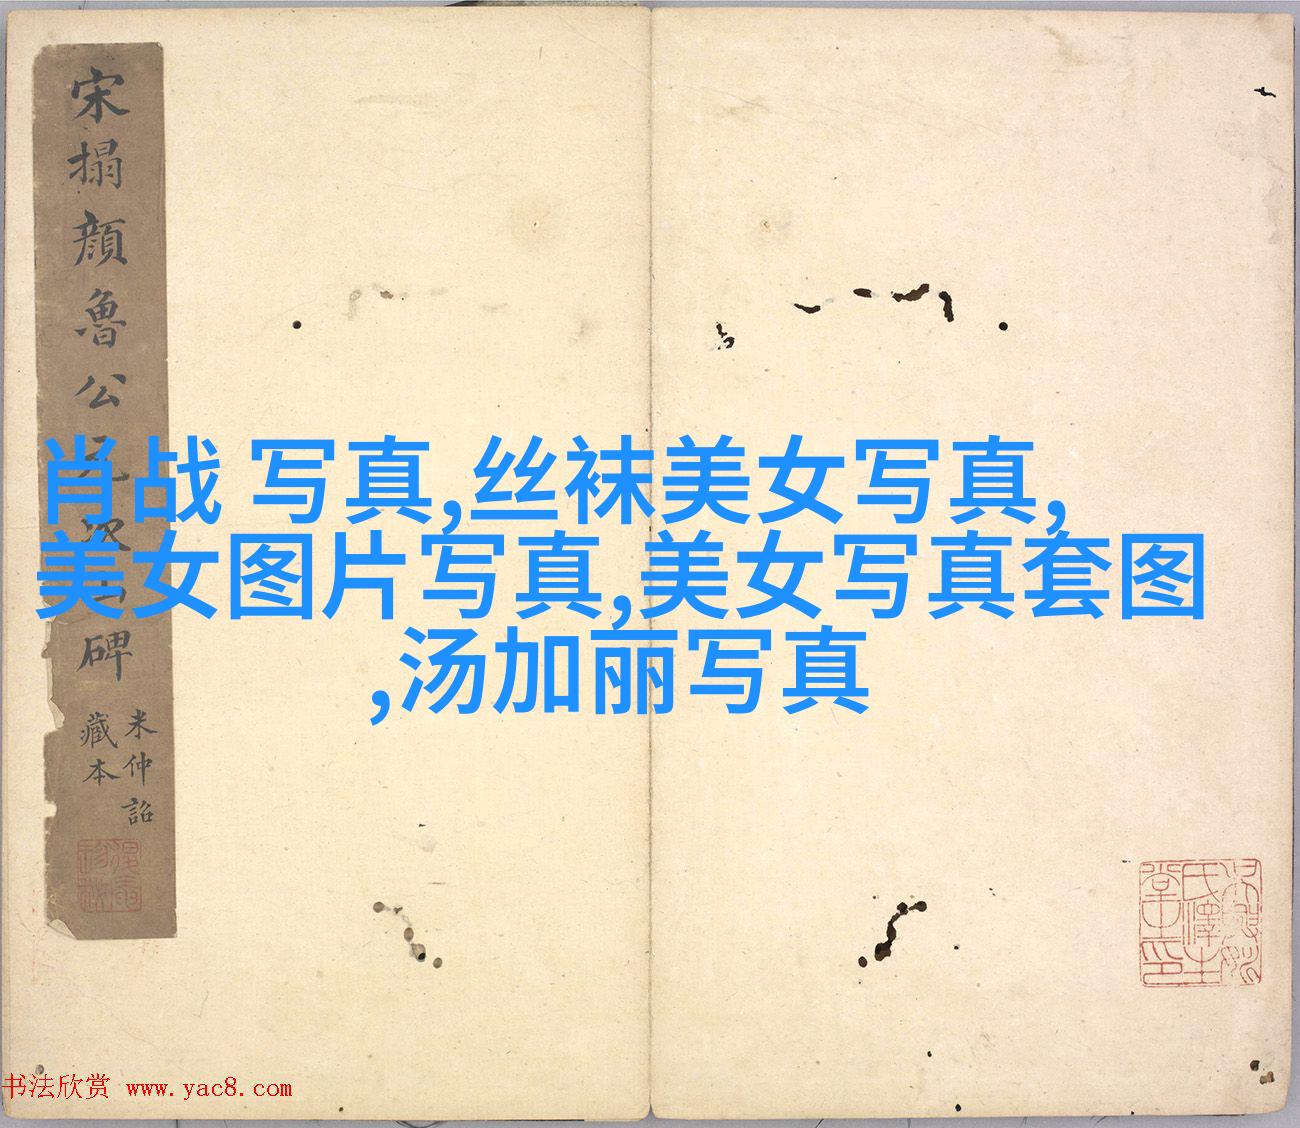 宋搨顏魯公元次山碑
米仲詔
藏本
肖战 写真,丝袜美女写真,
美女图片写真,美女写真套图
,汤加丽写真
书法欣赏 www.yac8.com